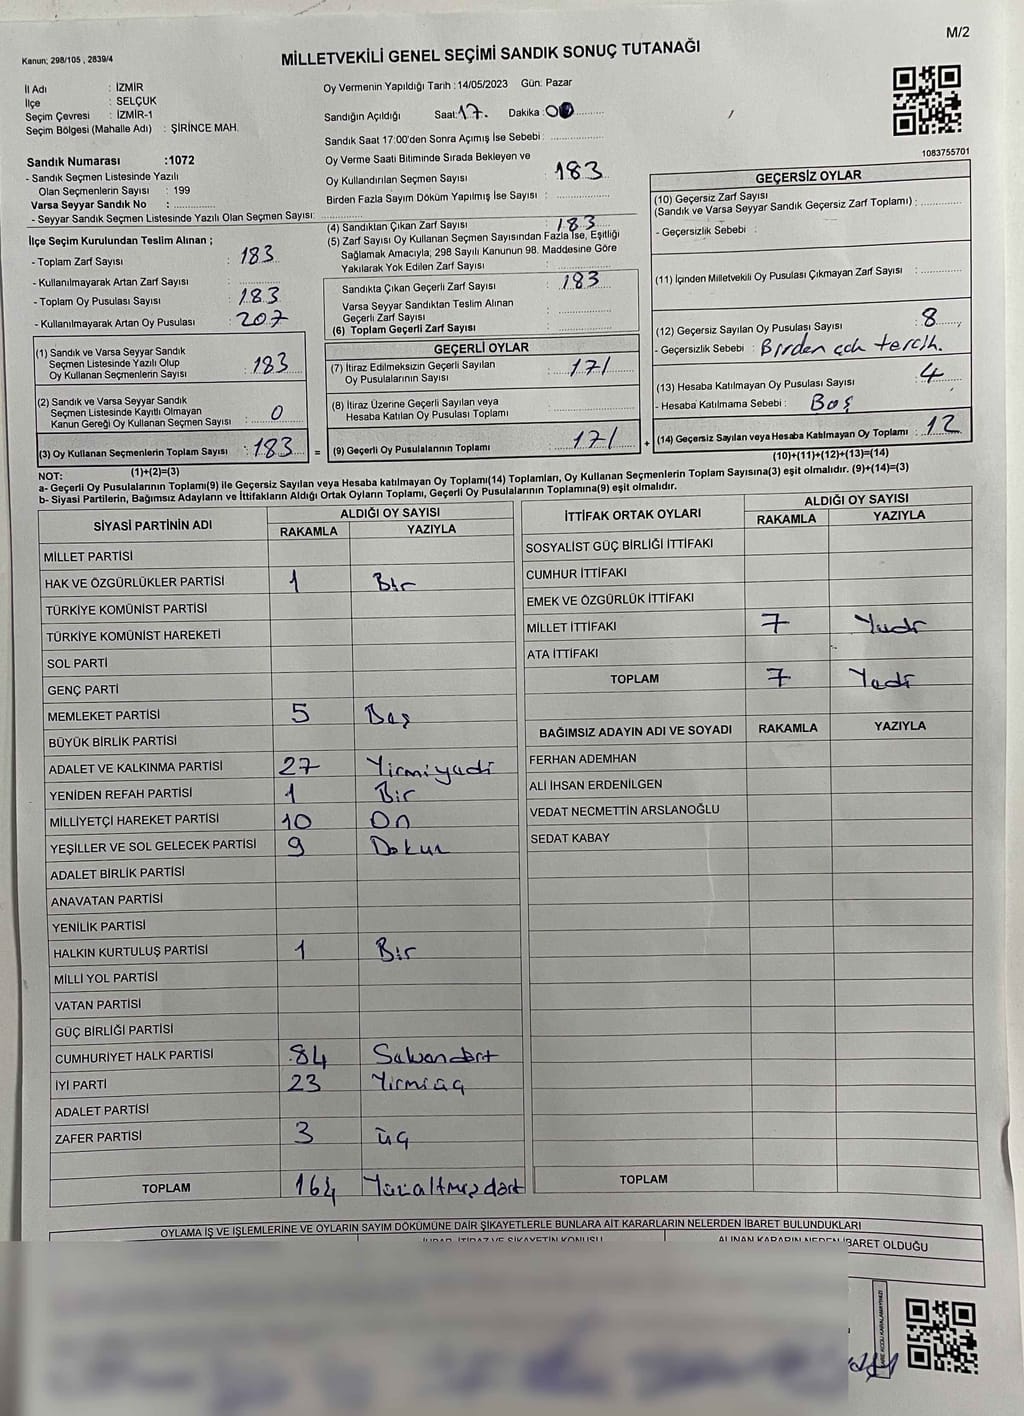 M/2
Kanun; 298/105 , 2839/4
MİLLETVEKİLİ GENEL SEÇİMİ SANDIK SONUÇ TUTANAĞI
İl Adı : İZMİR
İlçe : SELÇUK
Seçim Çevresi : İZMİR-1
Seçim Bölgesi (Mahalle Adı) : ŞİRİNCE MAH.
Oy Vermenin Yapıldığı Tarih : 14/05/2023 Gün: Pazar
Sandığın Açıldığı Saat: 17. Dakika :
Sandık Saat 17:00'den Sonra Açımış İse Sebebi :
Oy Verme Saati Bitiminde Sırada Bekleyen ve
Oy Kullandırılan Seçmen Sayısı : 183
Birden Fazla Sayım Döküm Yapılmış İse Sayısı :
1083755701
Sandık Numarası :1072
- Sandık Seçmen Listesinde Yazılı
Olan Seçmenlerin Sayısı : 199
Varsa Seyyar Sandık No :
- Seyyar Sandık Seçmen Listesinde Yazılı Olan Seçmen Sayısı:
İlçe Seçim Kurulundan Teslim Alınan ;
- Toplam Zarf Sayısı : 183
- Kullanılmayarak Artan Zarf Sayısı :
- Toplam Oy Pusulası Sayısı : 183
- Kullanılmayarak Artan Oy Pusulası : 207
(1) Sandık ve Varsa Seyyar Sandık
Seçmen Listesinde Yazılı Olup
Oy Kullanan Seçmenlerin Sayısı : 183
(2) Sandık ve Varsa Seyyar Sandık
Seçmen Listesinde Kayıtlı Olmayan
Kanun Gereği Oy Kullanan Seçmen Sayısı : 0
(3) Oy Kullanan Seçmenlerin Toplam Sayısı : 183
(1)+(2)=(3)
(4) Sandıktan Çıkan Zarf Sayısı : 183
(5) Zarf Sayısı Oy Kullanan Seçmen Sayısından Fazla İse, Eşitliği
Sağlamak Amacıyla; 298 Sayılı Kanunun 98. Maddesine Göre
Yakılarak Yok Edilen Zarf Sayısı :
Sandıkta Çıkan Geçerli Zarf Sayısı : 183
Varsa Seyyar Sandıktan Teslim Alınan
Geçerli Zarf Sayısı :
(6) Toplam Geçerli Zarf Sayısı :
GEÇERLİ OYLAR
(7) İtiraz Edilmeksizin Geçerli Sayılan
Oy Pusulalarının Sayısı : 171
(8) İtiraz Üzerine Geçerli Sayılan veya
Hesaba Katılan Oy Pusulası Toplamı :
= (9) Geçerli Oy Pusulalarının Toplamı : 171 +
GEÇERSİZ OYLAR
(10) Geçersiz Zarf Sayısı
(Sandık ve Varsa Seyyar Sandık Geçersiz Zarf Toplamı) :
- Geçersizlik Sebebi :
(11) İçinden Milletvekili Oy Pusulası Çıkmayan Zarf Sayısı :
(12) Geçersiz Sayılan Oy Pusulası Sayısı : 8
- Geçersizlik Sebebi : Birden çok tercih.
(13) Hesaba Katılmayan Oy Pusulası Sayısı : 4
- Hesaba Katılmama Sebebi : Boş
(14) Geçersiz Sayılan veya Hesaba Katılmayan Oy Toplamı : 12
(10)+(11)+(12)+(13)=(14)
NOT:
a- Geçerli Oy Pusulalarının Toplamı(9) ile Geçersiz Sayılan veya Hesaba Katılmayan Oy Toplamı(14) Toplamları, Oy Kullanan Seçmenlerin Toplam Sayısına(3) eşit olmalıdır. (9)+(14)=(3)
b- Siyasi Partilerin, Bağımsız Adayların ve İttifakların Aldığı Ortak Oyların Toplamı, Geçerli Oy Pusulalarının Toplamına(9) eşit olmalıdır.
SİYASİ PARTİNİN ADI ALDIĞI OY SAYISI
RAKAMLA YAZIYLA
MİLLET PARTİSİ
HAK VE ÖZGÜRLÜKLER PARTİSİ 1 Bir
TÜRKİYE KOMÜNİST PARTİSİ
TÜRKİYE KOMÜNİST HAREKETİ
SOL PARTİ
GENÇ PARTİ
MEMLEKET PARTİSİ 5 Beş
BÜYÜK BİRLİK PARTİSİ
ADALET VE KALKINMA PARTİSİ 27 Yirmiyedi
YENİDEN REFAH PARTİSİ 1 Bir
MİLLİYETÇİ HAREKET PARTİSİ 10 On
YEŞİLLER VE SOL GELECEK PARTİSİ 9 Dokuz
ADALET BİRLİK PARTİSİ
ANAVATAN PARTİSİ
YENİLİK PARTİSİ
HALKIN KURTULUŞ PARTİSİ 1 Bir
MİLLİ YOL PARTİSİ
VATAN PARTİSİ
GÜÇ BİRLİĞİ PARTİSİ
CUMHURİYET HALK PARTİSİ 84 Seksendört
İYİ PARTİ 23 Yirmiüç
ADALET PARTİSİ
ZAFER PARTİSİ 3 üç
TOPLAM 164 Yüzaltmışdört
İTTİFAK ORTAK OYLARI ALDIĞI OY SAYISI
RAKAMLA YAZIYLA
SOSYALİST GÜÇ BİRLİĞİ İTTİFAKI
CUMHUR İTTİFAKI
EMEK VE ÖZGÜRLÜK İTTİFAKI
MİLLET İTTİFAKI 7 Yedi
ATA İTTİFAKI
TOPLAM 7 Yedi
BAĞIMSIZ ADAYIN ADI VE SOYADI RAKAMLA YAZIYLA
FERHAN ADEMHAN
ALİ İHSAN ERDENİLGEN
VEDAT NECMETTİN ARSLANOĞLU
SEDAT KABAY
TOPLAM
OYLAMA İŞ VE İŞLEMLERİNE VE OYLARIN SAYIM DÖKÜMÜNE DAİR ŞİKAYETLERLE BUNLARA AİT KARARLARIN NELERDEN İBARET BULUNDUKLARI
İHBAR, İTİRAZ VE ŞİKAYETİN KONUSU ALINAN KARARIN NEDEN İBARET OLDUĞU